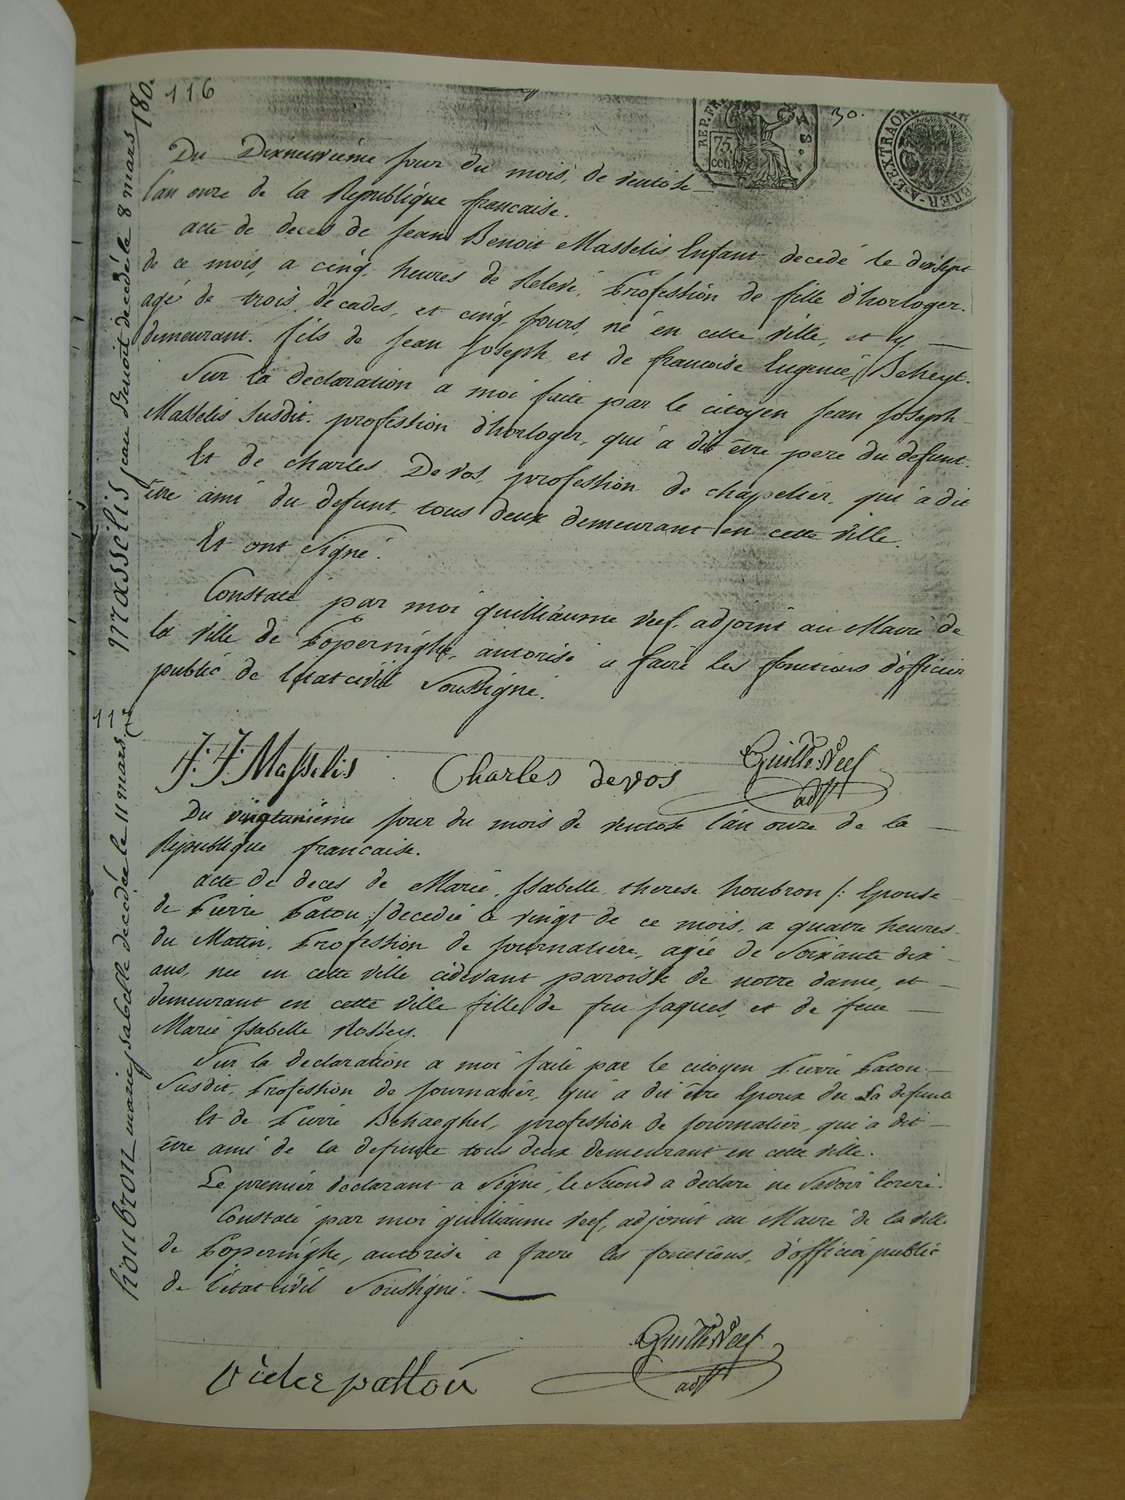 116
30.
REP. FRA
75
cent
A L'EXTRAOR
Du Dixneuvième jour du mois de ventose
l'an onze de la Republique francaise.
acte de deces de Jean Benoit Masselis Enfant decedé le dixsept
de ce mois, a cinq heures de Relevé, Profession de fille d'horloger.
agé de trois decades, et cinq jours, né en cette ville, et y
demeurant. fils de Jean Joseph et de francoise Eugenie Beheyt.
Sur la declaration a moi faite par le citoyen Jean Joseph
Masselis susdit. profession d'horloger, qui a dit être pere du defunt.
Et de charles Devos, profession de chapelier, qui a dit
être ami du defunt, tous deux demeurant en cette ville.
Et ont signé.
Constaté par moi guilliaume Neef, adjoint au Maire de
la ville de Poperinghe, autorisé a faire les fonctions d'officier
public de l'etat civil soussigné.
J. J. Masselis Charles devos Guille Neef
adjt
Masselis jean Benoit decedé le 8 mars 180
117
Du vingtunième jour du mois de ventose l'an onze de la
Republique francaise.
acte de deces de Marie Isabelle therese houbron /: Epouse
de Pierre Patou :/ decedée le vingt de ce mois, a quatre heures
du Matin, Profession de journaliere, agée de Soixante dix
ans, née en cette ville cidevant paroisse de notre dame, et
demeurant en cette ville fille de feu Jaques, et de feue
Marie Isabelle
Sur la declaration a moi faite par le citoyen Pierre Patou
susdit, Profession de journalier, qui a dit être Epoux du La defunte
Et de Pierre Behaeghel, profession de journalier, qui a dit
être ami de la defunte tous deux demeurant en cette ville.
Le premier declarant a signé, le second a declaré ne Savoir
Constaté par moi guilliaume Neef, adjoint au Maire de la ville
de Poperinghe, autorisé a faire les fonctions, d'officier public
de l'état civil Soussigné.
Guille Neef
adjt
pieter pattou
houbron marie isabelle decedée le 11 mars